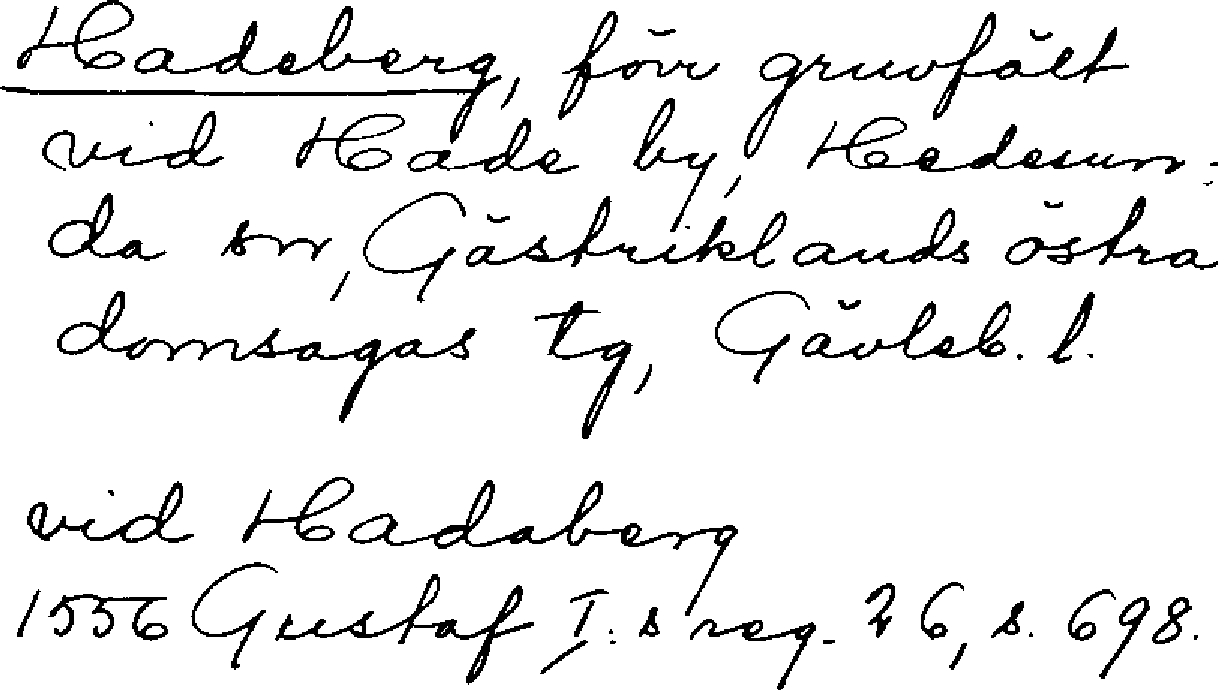 Hadeberg, förr gruvfält
vid Hade by, Hedesun-
da sn, Gästriklands östra
domsagas tg, Gävleb. l.
vid Hadaberg
1556 Gustaf I:s reg. 26, s. 698.